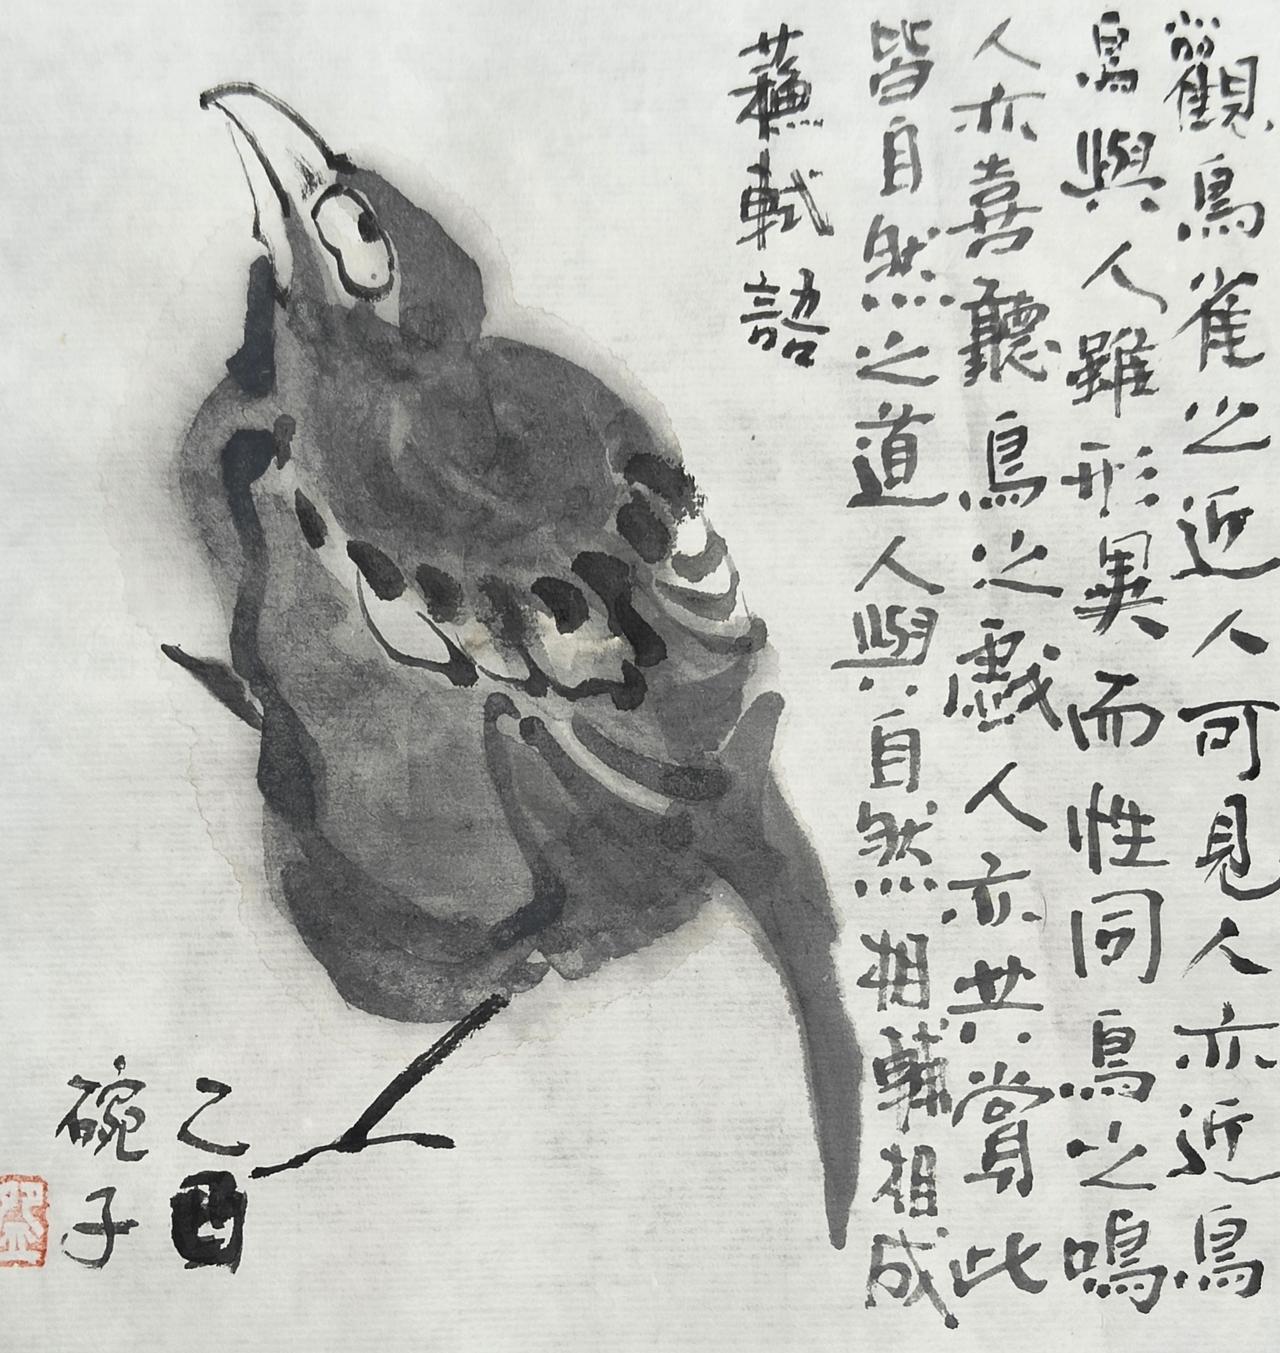 觀鳥雀之近人可見人亦近鳥
鳥與人雖形異而性同鳥之鳴
人亦喜聽鳥之戲人亦共賞此
皆自然之道人與自然相輔相成
蘇軾語
乙酉
碗子